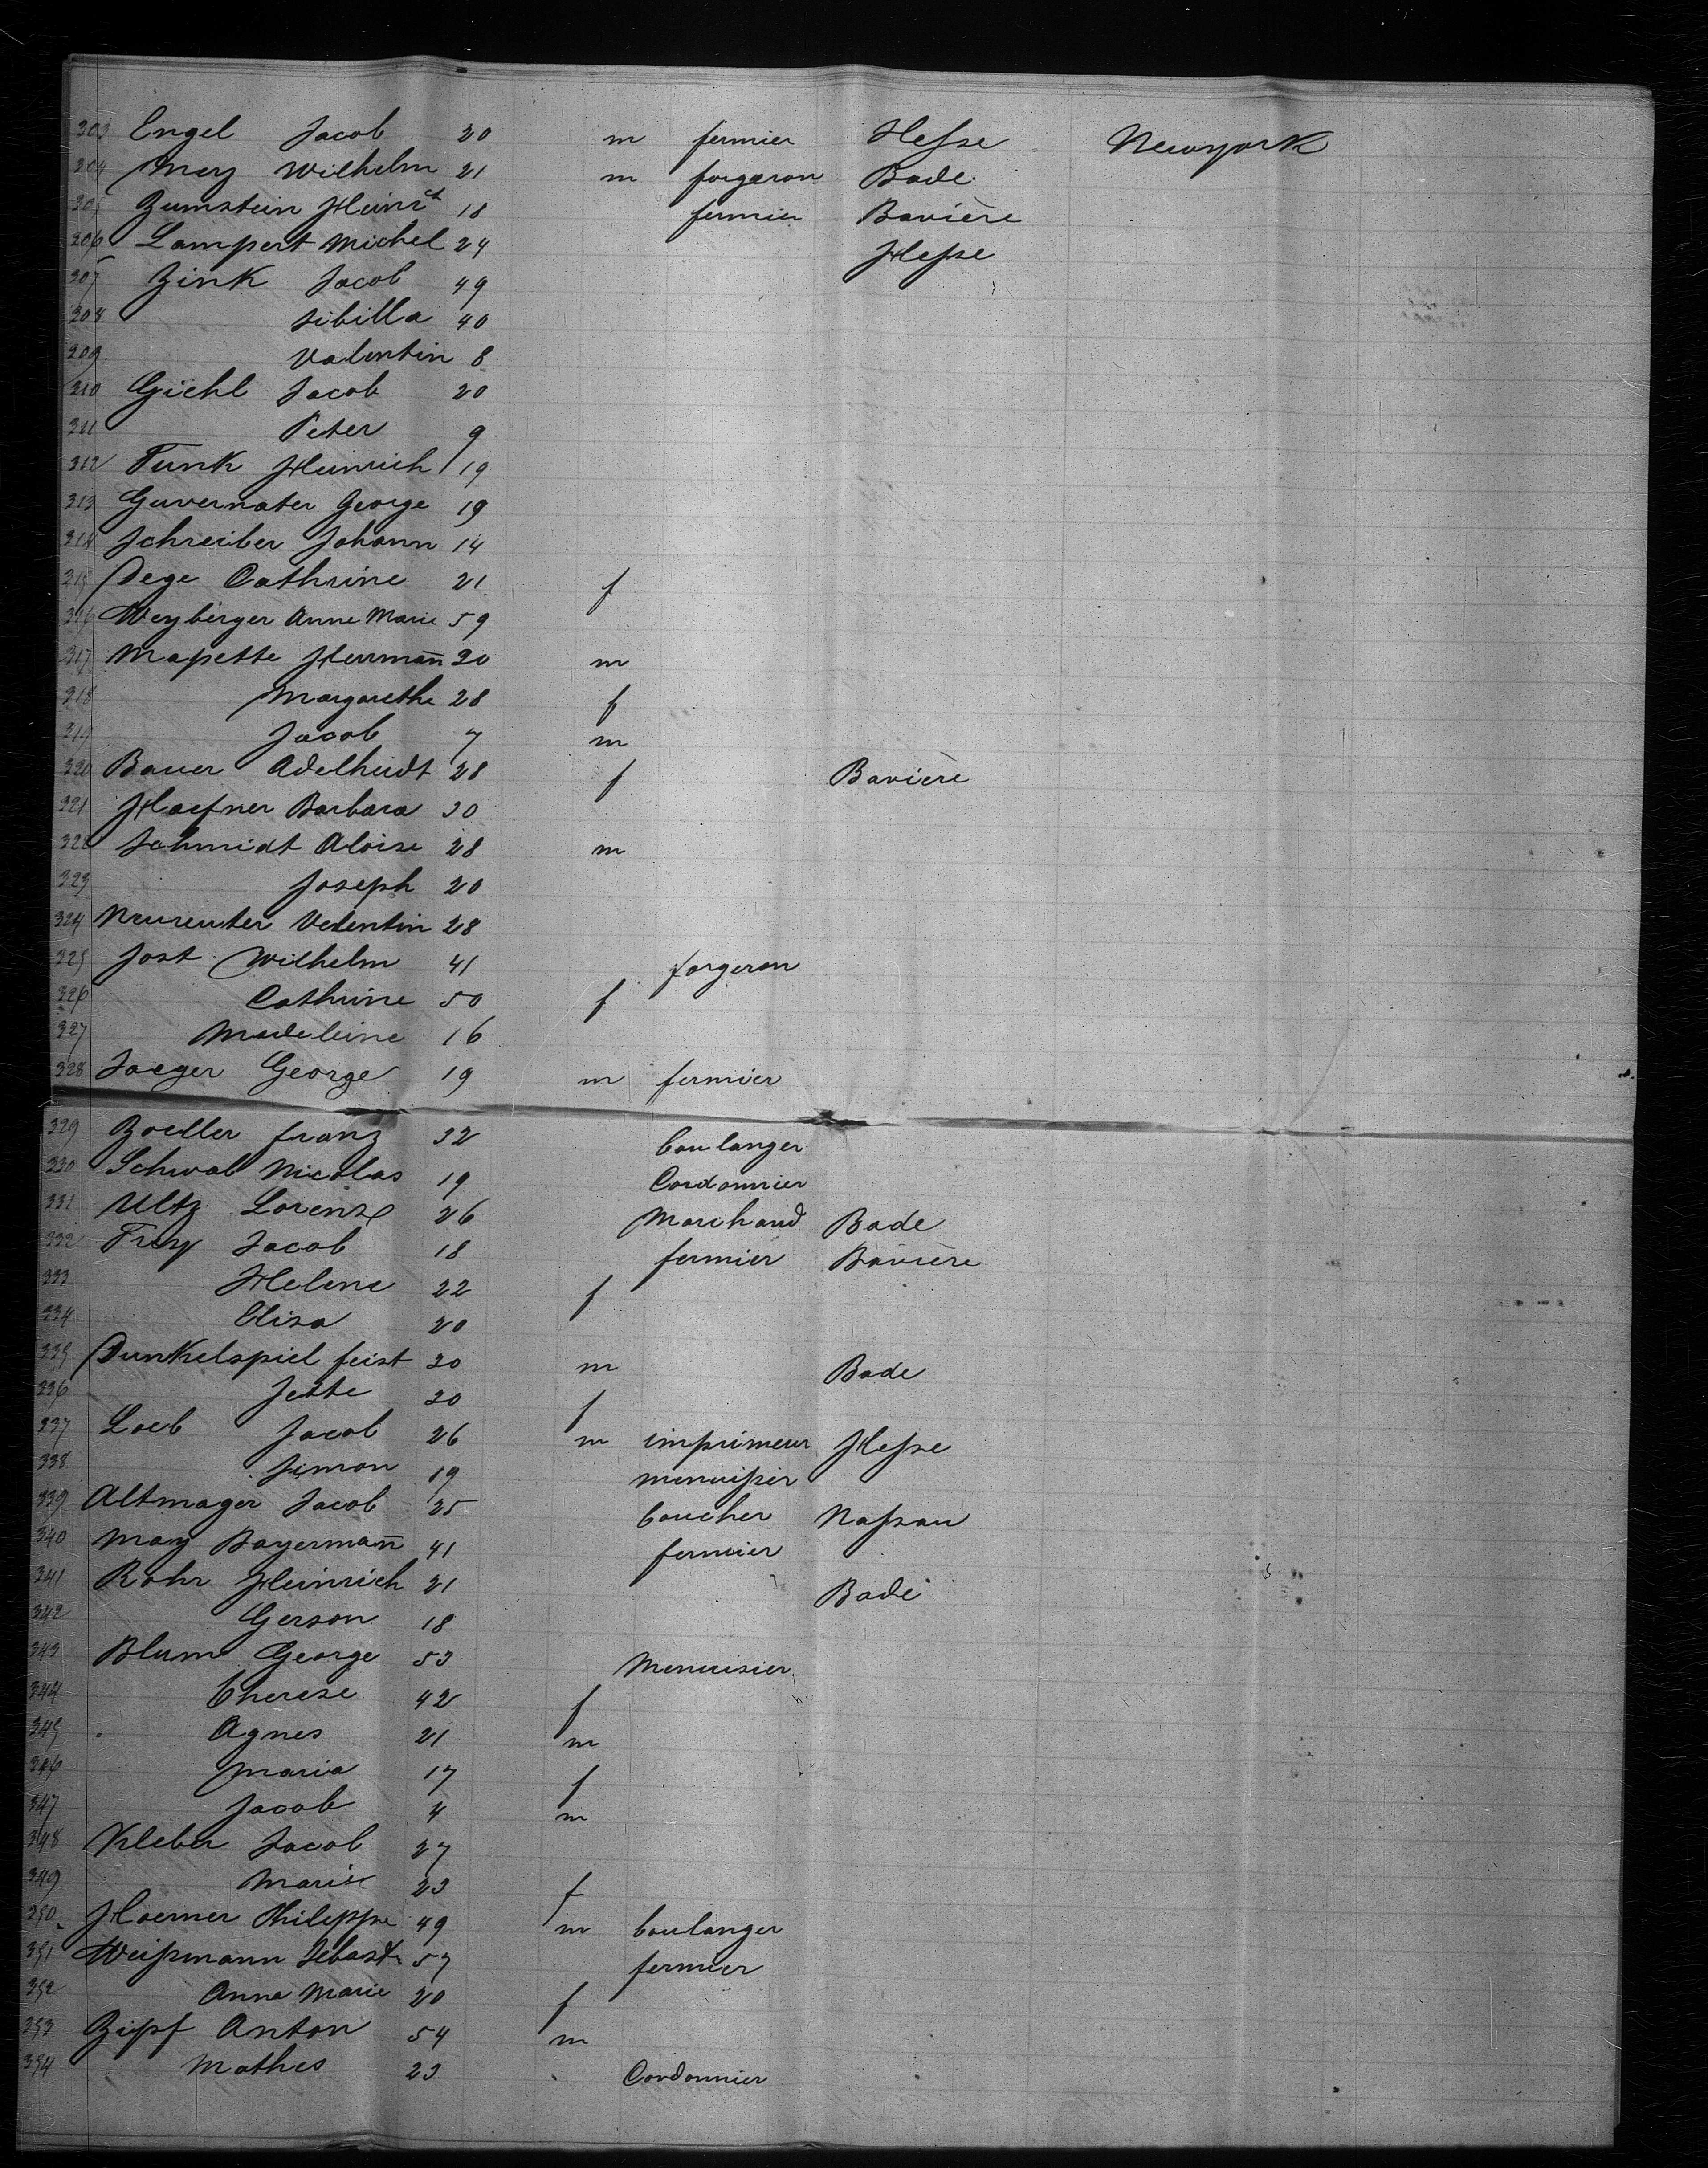 303 Engel Jacob 20 m fermier Hesse Newyork
304 Merz Wilhelm 21 m forgeron Bade
305 Zumstein Heinrch 18 fermier Bavière
306 Lampert Michel 24 Hesse
307 Zink Jacob 49
308 Sibilla 40
309 Valentin 8
310 Giehl Jacob 20
311 Peter 9
312 Funk Heinrich 19
313 Guvernater George 19
314 Schreiber Johann 14
315 Dege Cathrine 21 f
316 Weyberger Anne Marie 59
317 Massette Hermann 30 m
318 Margarethe 28 f
319 Jacob 7 m
320 Bauer Adelheidt 28 f Bavière
321 Haefner Barbara 30
322 Schmidt Aloise 28 m
323 Joseph 20
324 Neureuter Velentin 28
325 Jost Wilhelm 41 forgeron
326 Cathrine 50 f
327 Madeleine 16
328 Jaeger George 19 m fermier
329 Zoeller franz 32 boulanger
330 Schwab Nicolas 19 Cordonnier
331 Ultz Lorenz 26 Marchand Bade
332 Frey Jacob 18 fermier Bavière
333 Helene 22 f
334 Elisa 20
335 Dunkelspiel feist 30 m Bade
336 Jette 20 f
337 Loeb Jacob 26 m imprimeur Hesse
338 Simon 19 menuissier
339 Altmayer Jacob 25 boucher Nassau
340 May Bayermann 41 fermier
341 Rohr Heinrich 21 Bade
342 Gerson 18
343 Blum George 53 Menuisier
344 Therese 42 f
345 Agnes 21 m
346 Maria 17 f
347 Jacob 4 m
348 Kleber Jacob 27
349 Marie 23 f
350 Hoerner Philippe 49 m boulanger
351 Weissmann Sebast 57 fermier
352 Anna Marie 20 f
353 Zipf Anton 54 m
354 Mathes 23 Cordonnier